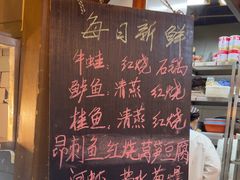 每日新鲜
牛蛙:红烧 石锅
鲈鱼:清蒸 红烧
桂鱼:清蒸 红烧
昂刺鱼红烧莴笋豆腐
河虾:盐水